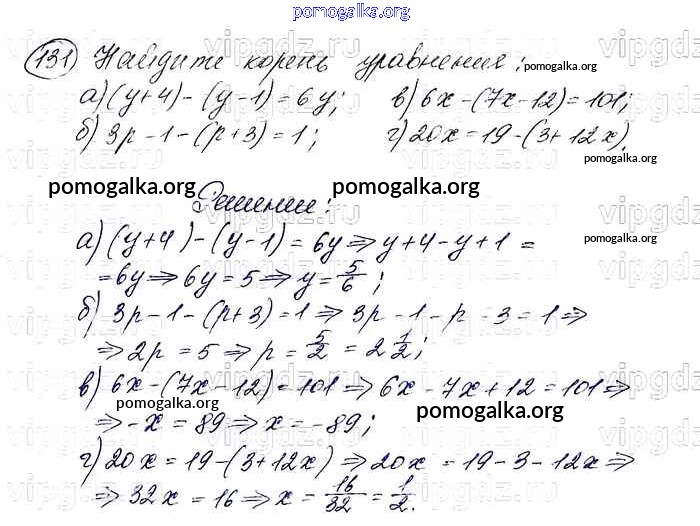 pomogalka.org
131 Найдите корень уравнения: pomogalka.org
а) (y+4)-(y-1)=6y; в) 6x-(7x-12)=101;
б) 3p-1-(p+3)=1; г) 20x=19-(3+12x).
pomogalka.org
pomogalka.org pomogalka.org
Решение:
а) (y+4)-(y-1)=6y⇒y+4-y+1=
pomogalka.org
=6y⇒6y=5⇒y=5/6;
б) 3p-1-(p+3)=1⇒3p-1-p-3=1⇒
⇒2p=5⇒p=5/2=2 1/2;
в) 6x-(7x-12)=101⇒6x-7x+12=101⇒
pomogalka.org pomogalka.org
⇒-x=89⇒x=-89;
г) 20x=19-(3+12x)⇒20x=19-3-12x⇒
⇒32x=16⇒x=16/32=1/2.